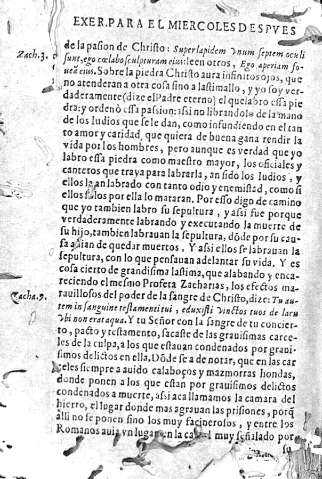 EXER. PARA EL MIERCOLES DESPVES
de la pasion de Christo: Super lapidem vnum septem oculi
Zach. 3. sunt, ego cœlabo sculpturam eius: leen otros, Ego aperiam fo-
uea eius. Sobre la piedra Christo aura infinitos ojos, que
no atenderan a otra cosa sino a lastimallo, y yo soy ver-
daderamente (dize el Padre eterno) el que labro essa pie-
dra: y ordenò essa passion: assi no librandole de la mano
de los Iudios que se le dan, como infundiendo en el tan
to amor y caridad, que quiera de buena gana rendir la
vida por los hombres, pero aunque es verdad que yo
labro essa piedra como maestro mayor, los oficiales y
canteros que traya para labrarla, an sido los Iudios, y
ellos la an labrado con tanto odio y enemistad, como si
ellos solos por ella lo mataran. Por esso digo de camino
que yo tambien labro su sepultura, y assi fue porque
verdaderamente labrando y executando la muerte de
su hijo, tambien labrauan la sepultura, dõde por su cau-
sa auian de quedar muertos. Y assi ellos se labrauan la
sepultura, con lo que pensauan adelantar su vida. Y es
cosa cierto de grandisima lastima, que alabando y enca-
reciendo el mesmo Profeta Zacharias, los efectos ma-
Zach. 9. rauillosos del poder de la sangre de Christo, dize: Tu au-
tem in sanguine testamenti tui, eduxisti vinctos tuos de lacu
vbi non erat aqua. Y tu Señor con la sangre de tu concier-
to, pacto y testamento, sacaste de las grauisimas carce-
les de la culpa, a los que estauan condenados por graui-
simos delictos en ella. Dõde se a de notar, que en las car
celes siempre a auido calaboços y mazmorras hondas,
donde ponen a los que estan por grauisimos delictos
condenados a muerte, assi aca llamamos la camara del
hierro, el lugar donde mas agrauan las prisiones, porq̃
alli no se ponen sino los muy facinerosos, y entre los
Romanos auia vn lugar en la carcel muy señalado por
su